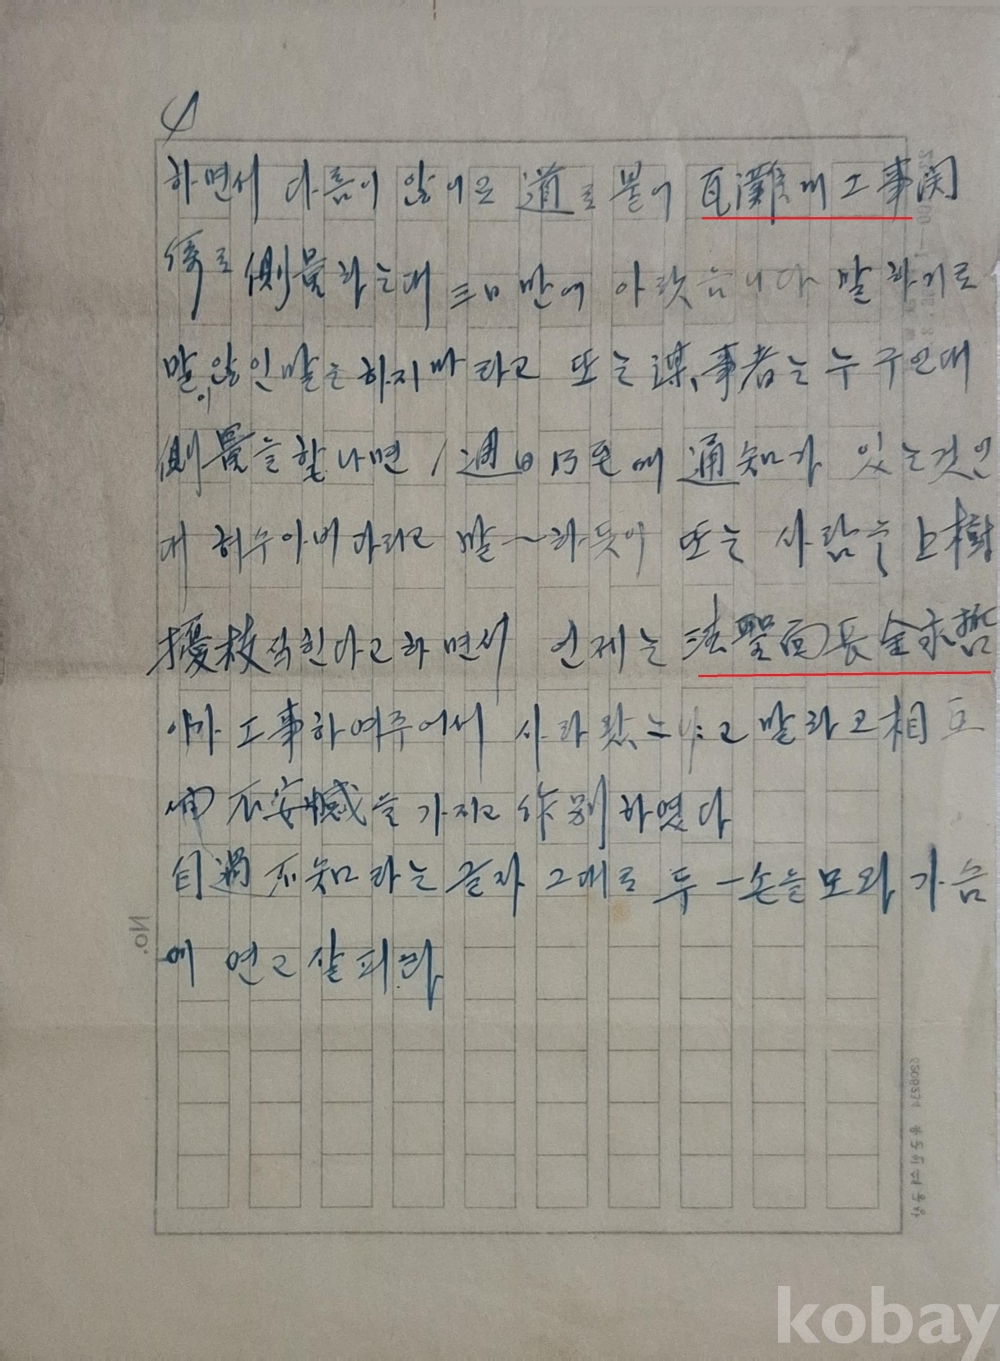 4
하면서 다름이 않이온 道로붙어 瓦灘개工事関
係로 側量하는대 三日만에 아랏슴니다 말하기로
말이 않인말는 하지마라고 또는 謀事者는 누구인대
側量을 할나면 1週日 13전에 通知가 있는것인
대 허수아버다라고 말~하듯이 또는 사람는 上樹
擾枝격한다고하면서 언제는 法聖面長金永哲
이가 工事하여주어서 사라왔느냐고 말라고 相互
不安憾을 가지고 作別하였다
自過不知라는 글자 그대로 두 손늘 모와 가슴
에 연고 살피라
No.
kobay